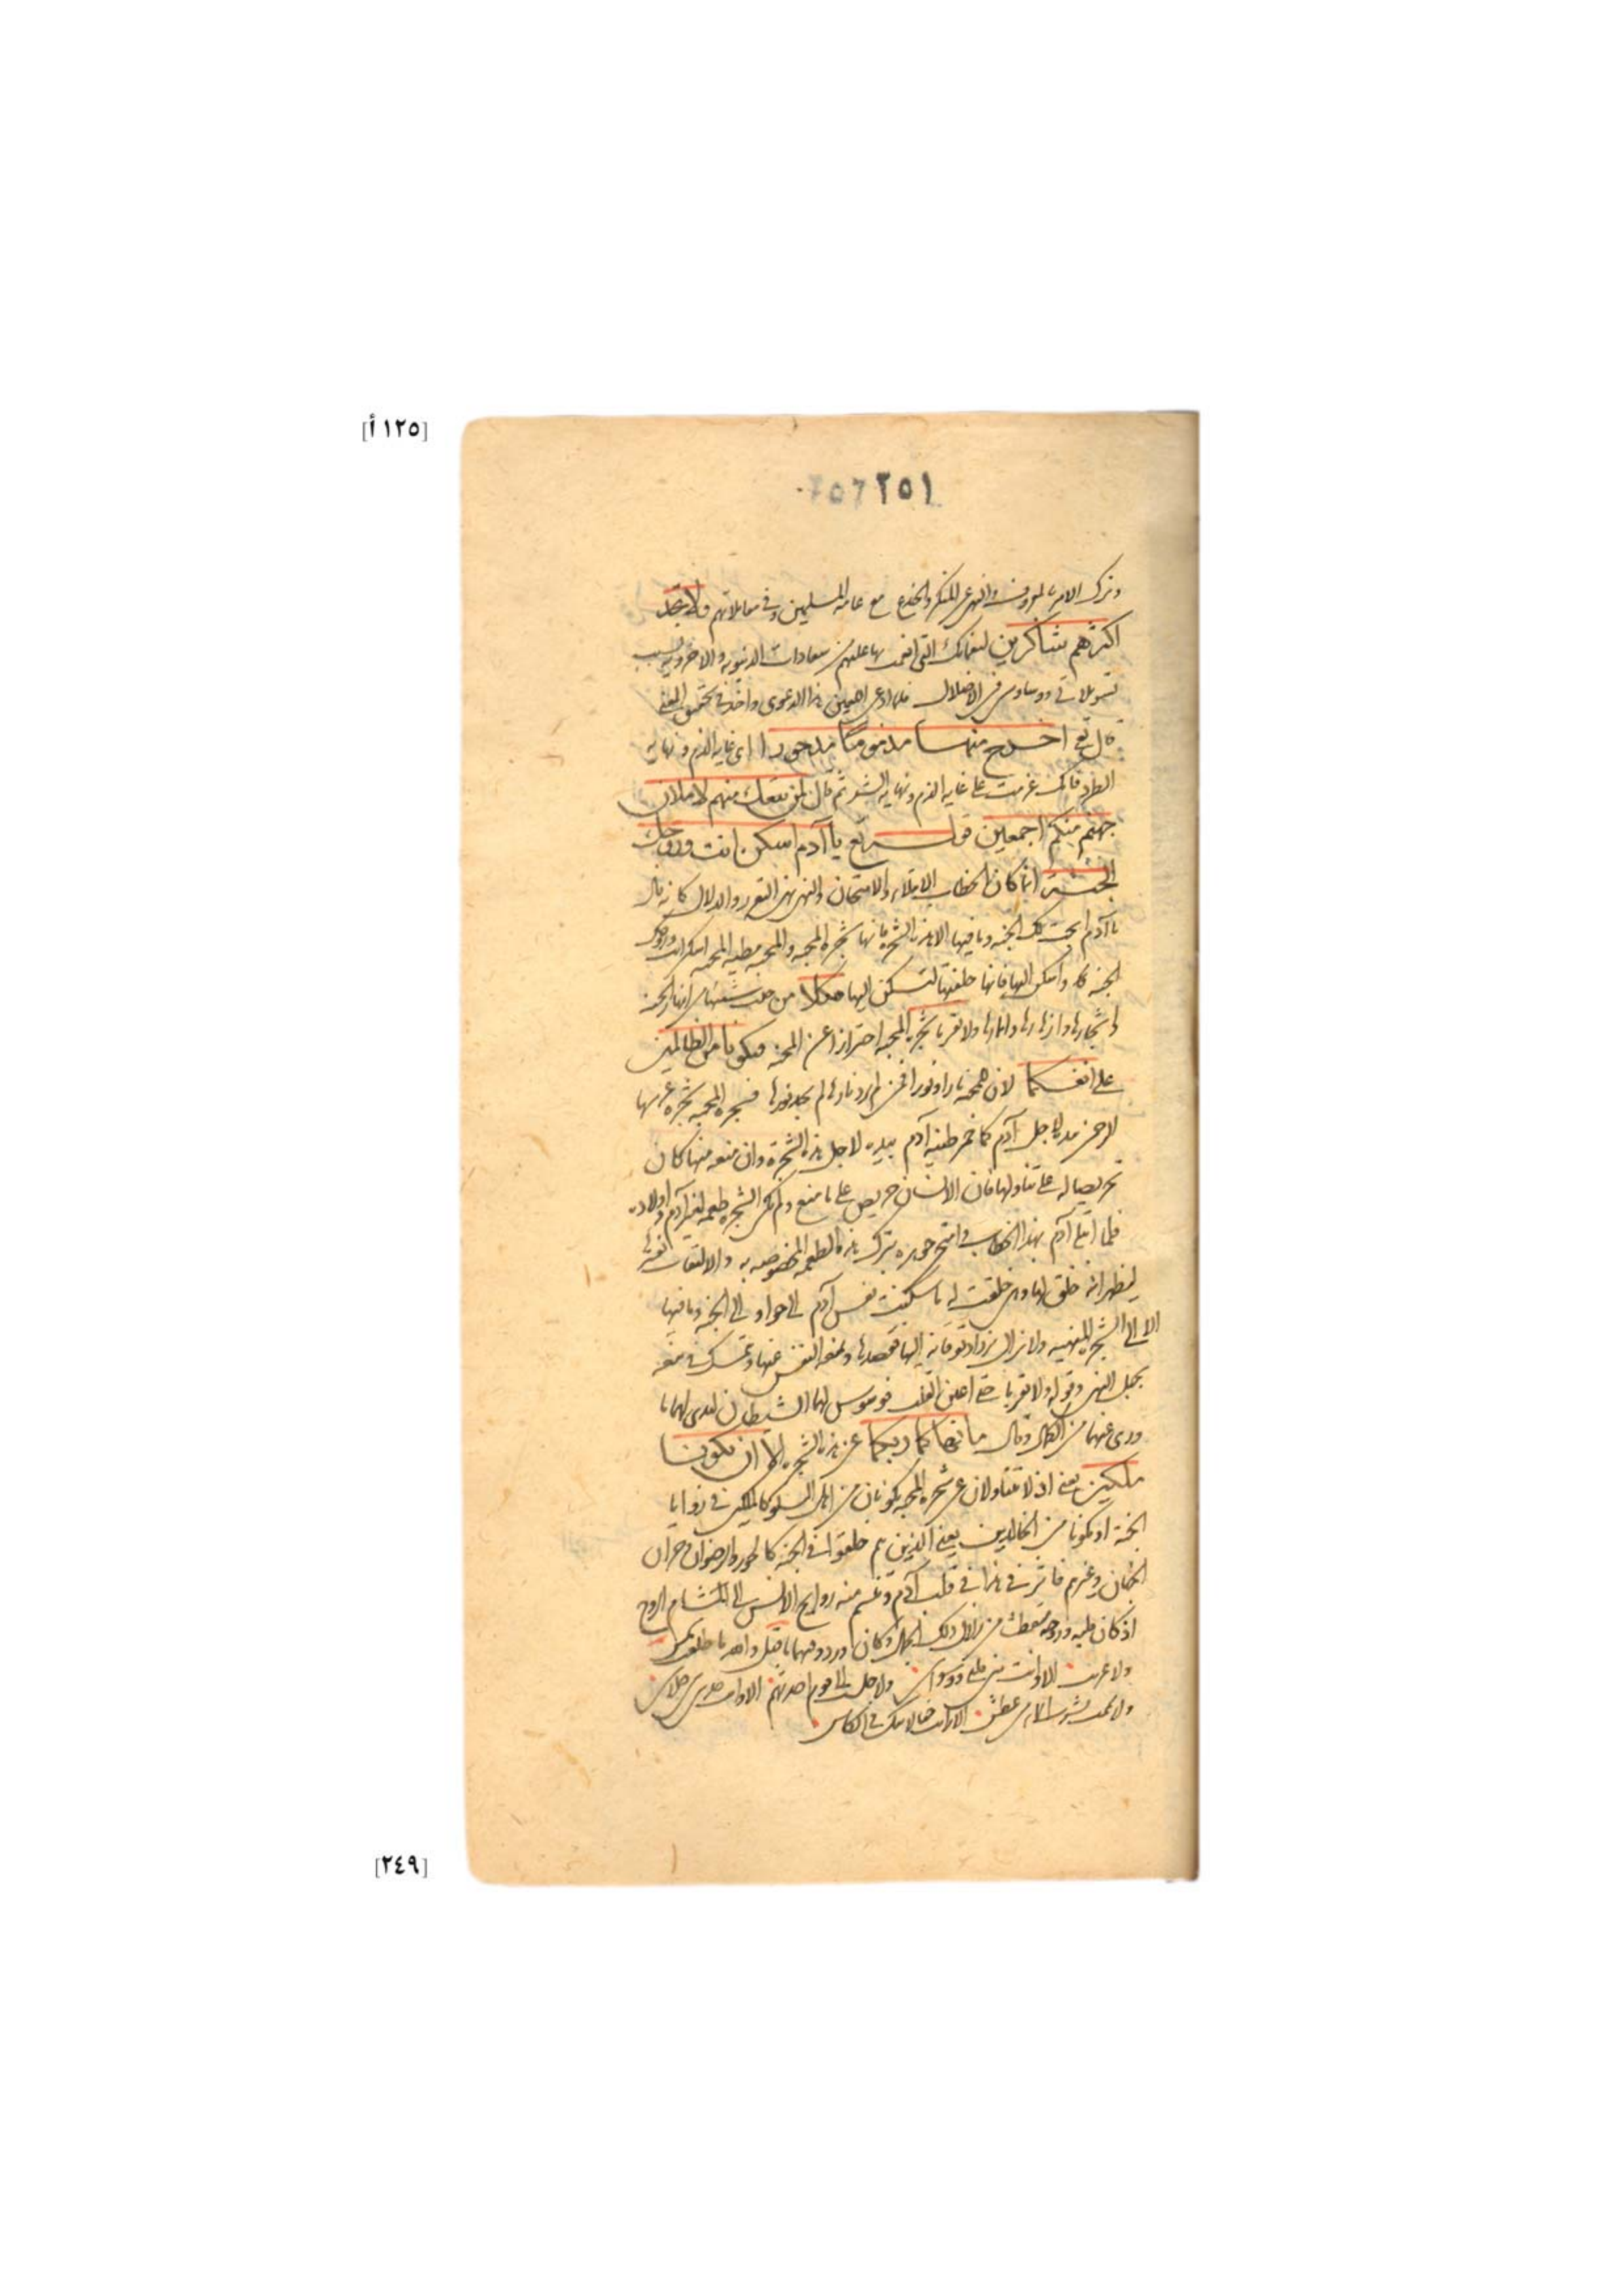 [١٢٥ أ]
٢٥١
وترك الامر بالمعروف والنهى عن المنكر والخدع مع عامة المسلمين وفى معاملاتهم ولا تجد
اكثرهم شاكرين لنعمائك التى انعمت بها عليهم من سعادات الدنيوية والاخروية بسبب
تسويلاتى ووساوسى فى الاضلال فلما ادعى اللعين هذا الدعوى واخذ فى تحقيق المعنى
قال تع اخرج منها مذموما مدحورا اى غاية الذم ونهاية
الطرد فانك عزمت على غاية الذم ونهاية الشر ثم قال لمن تبعك منهم لاملان
جهنم منكم اجمعين قوله تع يا آدم اسكن انت وزوجك
الجنة انما كان الخطاب الابتلاء والامتحان والنهى نهى التعزز والدلال كانه قال
يا آدم ابحت لك الجنة وما فيها الا هذه الشجرة فانها شجرة المحبة والمحبة مطية المحنة اسكن انت وزوجك
الجنة كلا واسكن اليها فانها خلقتها لتسكن اليها فكلا من حيث شئتما من انهار الجنة
واشجارها وازهارها واثمارها ولا تقربا شجرة المحبة احترازا عن المحنة فتكونا من الظالمين
على انفسكما لان للمحبة نارا ونورا فمن لم يرد نارها لم يجد نورها فشجرة المحبة شجرة غرسها
الرحمن بيده لاجل آدم كما خمر طينة آدم بيده لاجل هذه الشجرة وان منعه منها كان
تحريصا له على تناولها فان الانسان حريص على ما منع ولم تكن الشجرة طعمة لغير آدم واولاده
فلما ابتلى آدم بهذا الخطاب وامتحن جوهره بترك هذه الطعمة المخصوصة به والالتفات
ليظهر انه خلق لها وهى خلقت له ما سكنت نفس آدم الى حوا ولا الى الجنة وما فيها
الا الى الشجرة المنهية ولا يزال يزداد توقانه اليها فقصدها ويمنعه النفس عنها وتمسك فى منعه
بحبل النهى وقوله ولا تقربا حتى اعين القلب فوسوس لهما الشيطان ليبدى لهما ما
ورى عنهما من الكمال وقال ما نهاكما ربكما عن هذه الشجرة الا ان تكونا
ملكين يعنى اذ لا تتناولان عن شجرة المحبة تكونان من اهل السلو كالملكين فى زوايا
الجنة او تكونا من الخالدين يعنى الذين هم خلقوا فى الجنة كالحور والرضوان وخزان
الجنان وغيرهم فاثر هذا فى قلب آدم وتنسم منه روايح الانس الى المشام الروح
ولا الا وانت منى قلبى ووسواسى ولا جلست الى قوم احدثهم الا وانت حديثى بين جلاسى